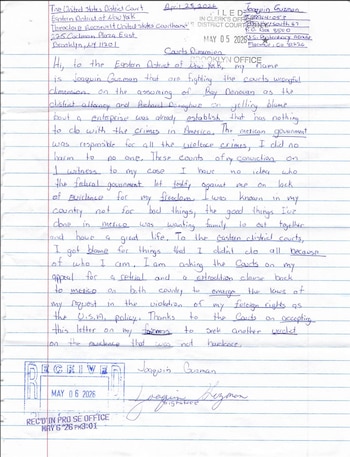 The United States District Court
Eastern District of New York
Theodore Roosevelt United States Courthouse
225 Cadman Plaza East
Brooklyn, NY 11201
April 23, 2026
FILED
IN CLERK'S OFFICE
DISTRICT COURT
MAY 05 2026
BROOKLYN OFFICE
Joaquin Guzman
P.O. Box 8500
Florence, Co 81226
Courts Dimension
Hi, to the Eastern District of New York, my name
is Joaquin Guzman that are fighting the courts wrongful
dimension on the assuring of Ray Donovan as the
district attorney and Richard Donoghue on yelling blame
bout a enterprise was already establish that has nothing
to do with the crimes in America. The mexican government
was responsible for all the violence crimes, I did no
harm to no one. These counts of my conviction on
1 witness to my case I have no idea who
the federal government let testify against me on lack
of evidence for my freedom. I was known in my
country not for bad things, the good things I've
done in mexico was wanting family to eat together
and have a great life. To the Eastern district courts,
I got blame for things that I didn't do all because
of who I am, I am asking the Courts on my
appeal for a retrial and a extradition clause back
to mexico on both country to the laws of
my request in the violation of my foreign rights as
the U.S.A. policy. Thanks to the Courts on accepting
this letter on my to seek another verdict
on the evidence that was not
Joaquin Guzman
Joaquin Guzman
signature
RECEIVED
MAY 06 2026
REC'D IN PRO SE OFFICE
MAY 6 '26 PM3:01